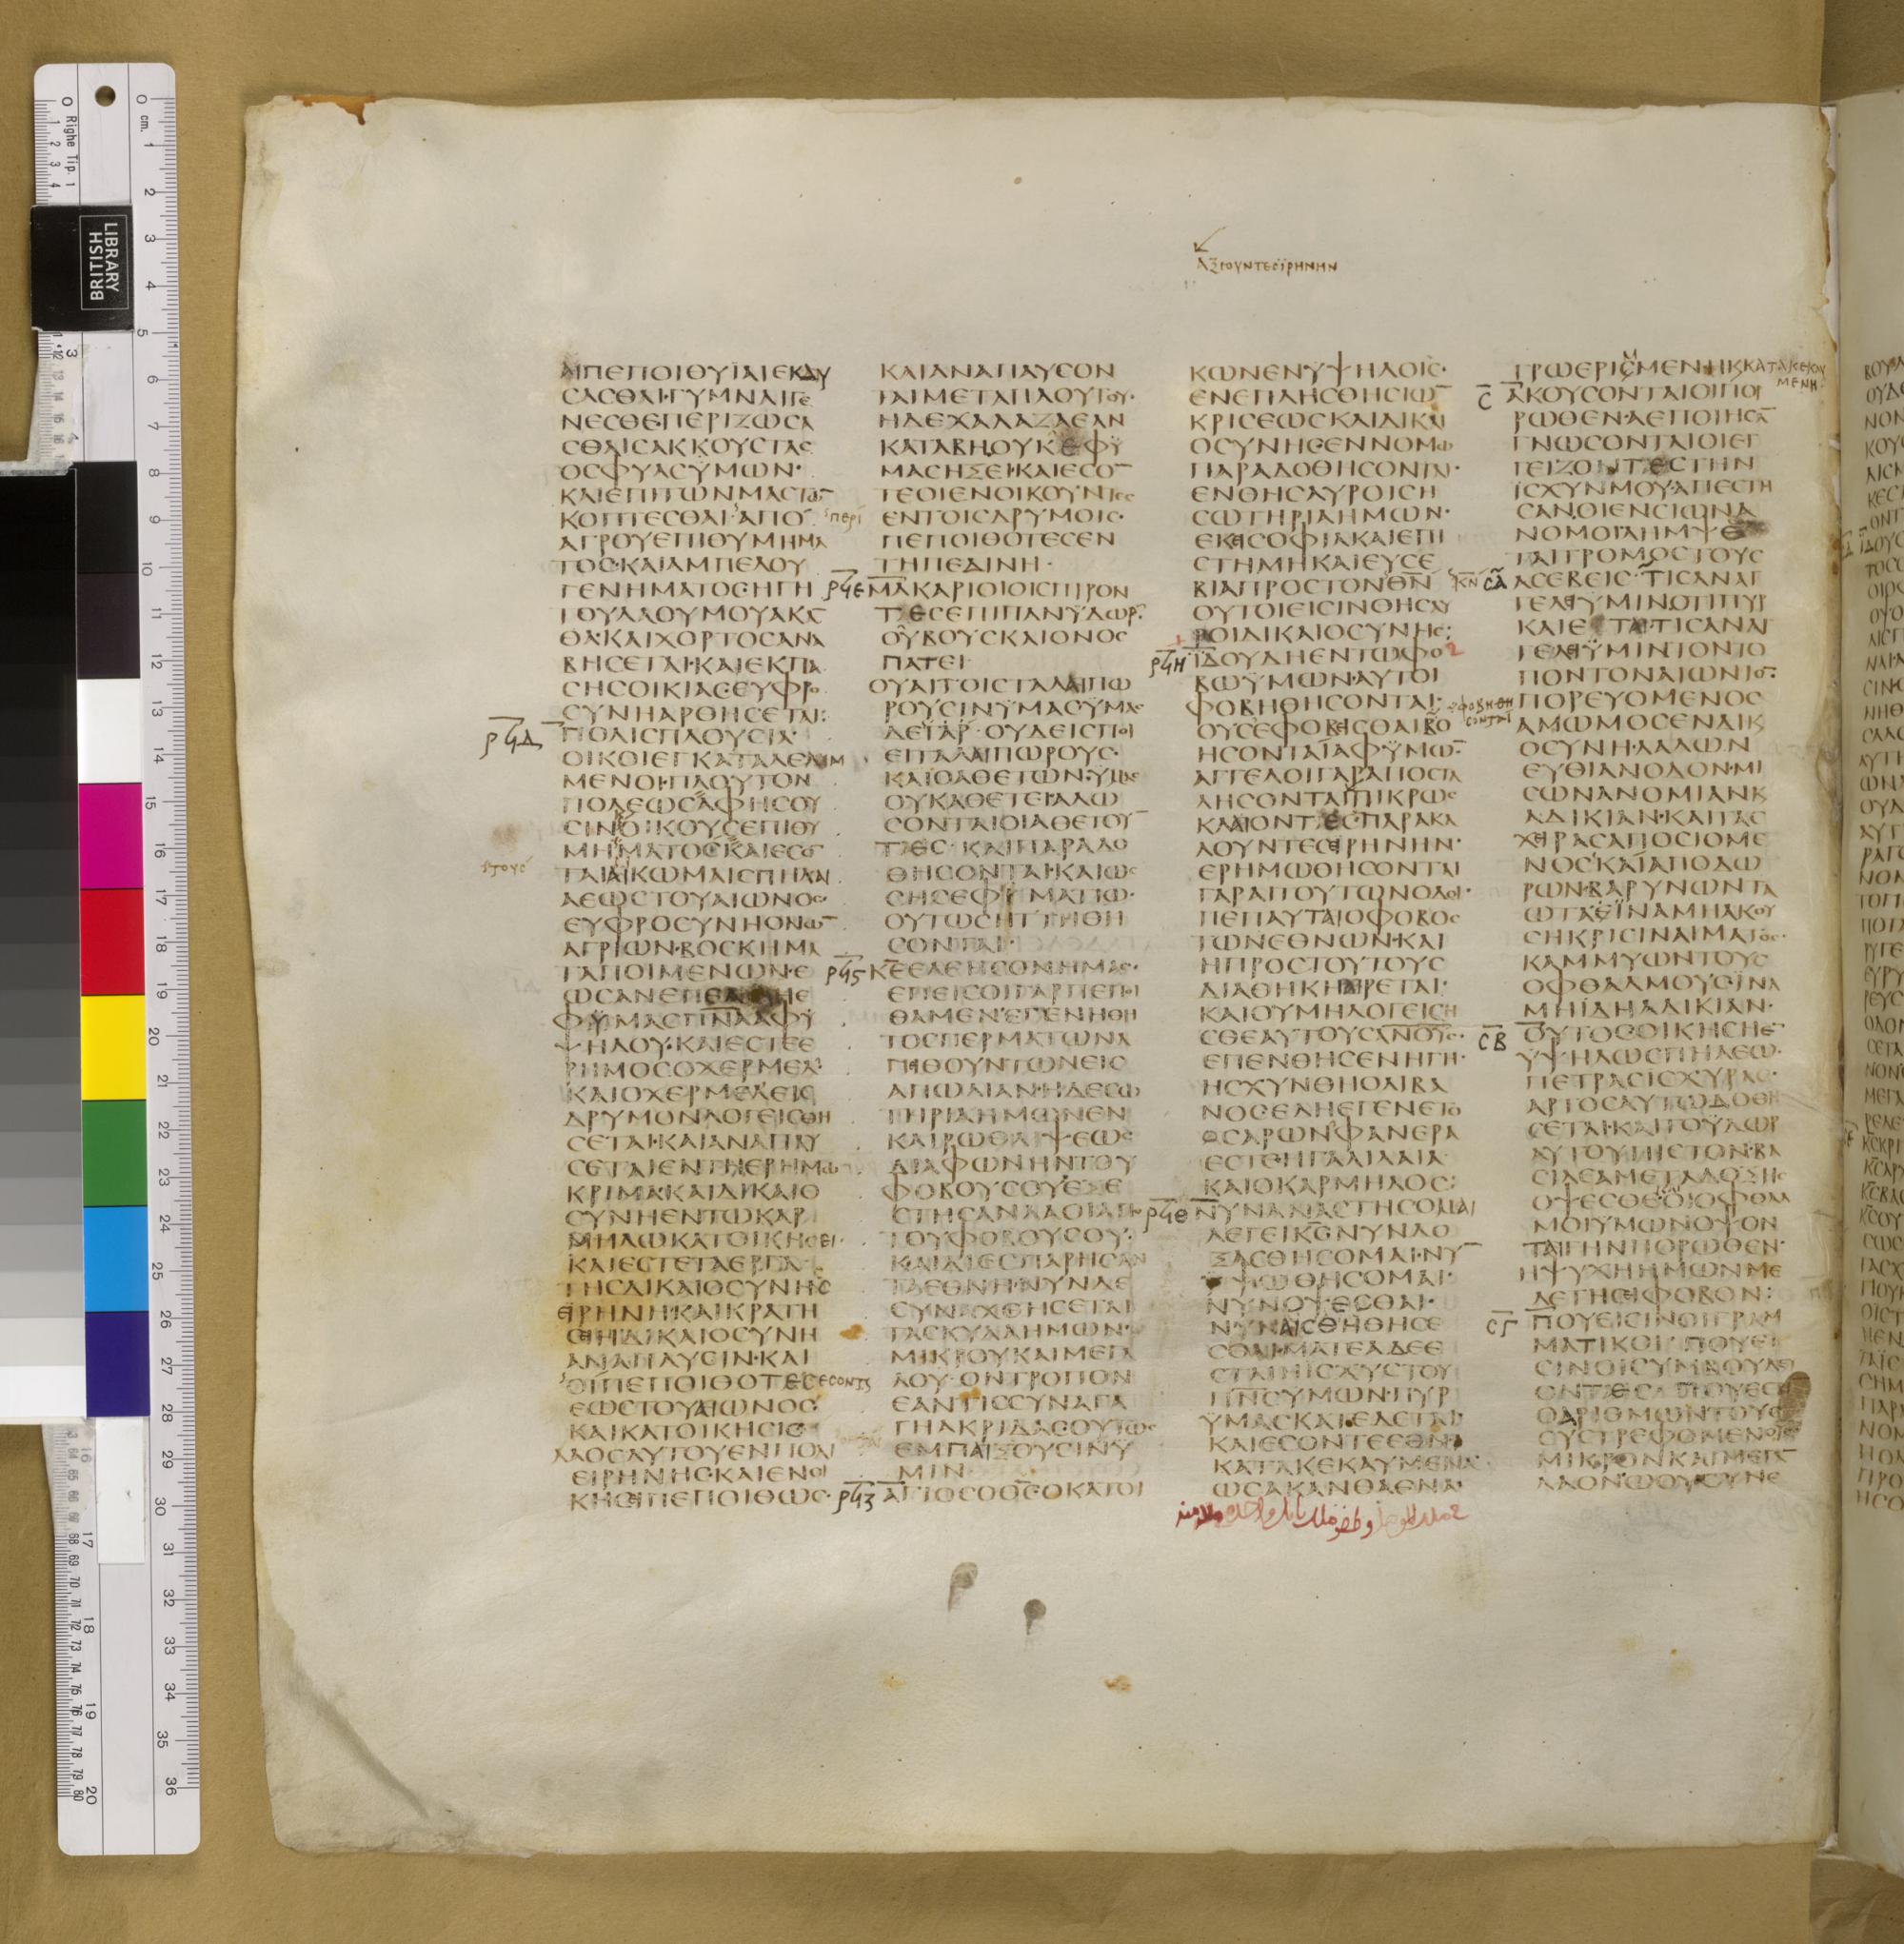 ΑΙΠΕΠΟΙΘΥΙΑΙΕΚΔΥ
ΣΑΣΘΑΙ·ΓΥΜΝΑΙΓΕ
ΝΕΣΘΕ·ΠΕΡΙΖΩΣΑ
ΣΘΑΙΣΑΚΚΟΥΣΤΑΣ
ΟΣΦΥΑΣΫΜΩΝ·
ΚΑΙΕΠΙΤΩΝΜΑΣΤΩ̅
ΚΟΠΤΕΣΘΑΙ·ΑΠΟ
ΠΕΡΙ
ΑΓΡΟΥΕΠΙΘΥΜΗΜΑ
ΤΟΣ·ΚΑΙΑΜΠΕΛΟΥ
ΓΕΝΗΜΑΤΟΣ·ΗΓΗ
ΤΟΥΛΑΟΥΜΟΥΑΚΑ
ΘΑ·ΚΑΙΧΟΡΤΟΣΑΝΑ
ΒΗΣΕΤΑΙ·ΚΑΙΕΚΠΑ
ΣΗΣΟΙΚΙΑΣ·ΕΥΦΡΟ
ΣΥΝΗΑΡΘΗΣΕΤΑΙ:
ΡϤΔ
ΠΟΛΙΣΠΛΟΥΣΙΑ·
ΟΙΚΟΙΕΓΚΑΤΑΛΕΛΙΜ
ΜΕΝΟΙ·ΠΛΟΥΤΟΝ
ΠΟΛΕΩΣΑΦΗΣΟΥ
ΣΙΝΟΙΚΟΥΣΕΠΙΘΥ
ΜΗΜΑΤΟΣΚΑΙΕΣΟ̅
ΤΟΥΣ
ΤΑΙΑΙΚΩΜΑΙΣΠΗΛΑΙ
ΑΕΩΣΤΟΥΑΙΩΝΟΣ·
ΕΥΦΡΟΣΥΝΗΟΝΩ̅
ΑΓΡΙΩΝ·ΒΟΣΚΗΜΑ
ΤΑΠΟΙΜΕΝΩΝ·Ε
ΩΣΑΝΕΠΕΛΘΗΕ
ΦΫΜΑΣΠΝΑΑΦΫ
ΨΗΛΟΥ·ΚΑΙΕΣΤΕΕ
ΡΗΜΟΣΟΧΕΡΜΕΛ·
ΚΑΙΟΧΕΡΜΕΛΕΙΣ
ΔΡΥΜΟΝΛΟΓΕΙΣΘΗ
ΣΕΤΑΙ·ΚΑΙΑΝΑΠΑΥ
ΣΕΤΑΙΕΝΤΗΕΡΗΜΩ
ΚΡΙΜΑ·ΚΑΙΔΙΚΑΙΟ
ΣΥΝΗΕΝΤΩΚΑΡ
ΜΗΛΩΚΑΤΟΙΚΗΣΕΙ·
ΚΑΙΕΣΤΕΤΑΕΡΓΑ
ΤΗΣΔΙΚΑΙΟΣΥΝΗΣ
ΕΙΡΗΝΗ·ΚΑΙΚΡΑΤΗ
ΣΕΙΗΔΙΚΑΙΟΣΥΝΗ
ΑΝΑΠΑΥΣΙΝ·ΚΑΙ
ΟΙΠΕΠΟΙΘΟΤΕΣΕΣΟΝΤΑΙ
ΕΩΣΤΟΥΑΙΩΝΟΣ·
ΚΑΙΚΑΤΟΙΚΗΣΙΟ
ΛΑΟΣΑΥΤΟΥΕΝΠΟΛΙ
ΕΙΡΗΝΗΣ·ΚΑΙΕΝΟΙ
ΚΗΣΙΠΕΠΟΙΘΩΣ·
ΚΑΙΑΝΑΠΑΥΣΟΝ
ΤΑΙΜΕΤΑΠΛΟΥΤΟΥ·
ΗΔΕΧΑΛΑΖΑΕΑΝ
ΚΑΤΑΒΗΟΥΚΕΦΫ
ΜΑΣΗΞΕΙ·ΚΑΙΕΣΟ̅
ΤΕΟΙΕΝΟΙΚΟΥΝΤΕΣ
ΕΝΤΟΙΣΔΡΥΜΟΙΣ·
ΠΕΠΟΙΘΟΤΕΣΕΝ
ΤΗΠΕΔΙΝΗ·
ΡϤΕ
ΜΑΚΑΡΙΟΙΟΙΣΠΙΡΟΝ
ΤΕΣΕΠΙΠΑΝΫΔΩΡ·
ΟΥΒΟΥΣΚΑΙΟΝΟΣ
ΠΑΤΕΙ
ΟΥΑΙΤΟΙΣΤΑΛΑΙΠΩ
ΡΟΥΣΙΝΫΜΑΣΫΜΑΣ
ΔΕΓΑΡ·ΟΥΔΕΙΣΠΟΙ
ΕΙΤΑΛΑΙΠΩΡΟΥΣ·
ΚΑΙΟΑΘΕΤΩΝ·ΫΜΑΣ
ΟΥΚΑΘΕΤΕΙ·ΑΛΩ
ΣΟΝΤΑΙΟΙΑΘΕΤΟΥ̅
ΤΕΣ·ΚΑΙΠΑΡΑΔΟ
ΘΗΣΟΝΤΑΙ·ΚΑΙΩΣ
ΣΗΣΕΦΙΜΑΤΙΩ·
ΟΥΤΩΣΗΤΤΗΘΗ
ΣΟΝΤΑΙ·
ΡϤϚ
ΚΕΕΛΕΗΣΟΝΗΜΑΣ·
ΕΠΕΙΣΟΙΓΑΡΠΕΠΟΙ
ΘΑΜΕΝ·ΕΓΕΝΗΘΗ
ΤΟΣΠΕΡΜΑΤΩΝΑ
ΠΙΘΟΥΝΤΩΝΕΙΣ
ΑΠΩΛΙΑΝ·ΗΔΕΣΩ
ΤΗΡΙΑΗΜΩΝΕΝ
ΚΑΙΡΩΘΛΙΨΕΩΣ
ΔΙΑΦΩΝΗΝΤΟΥ
ΦΟΒΟΥΣΟΥΕΞΕ
ΣΤΗΣΑΝΛΑΟΙΑΠΟ
ΤΟΥΦΟΒΟΥΣΟΥ·
ΚΑΙΔΙΕΣΠΑΡΗΣΑΝ
ΤΑΕΘΝΗ·ΝΥΝΔΕ
ΣΥΝΑΧΘΗΣΕΤΑΙ
ΤΑΣΚΥΛΑΗΜΩΝ·
ΜΙΚΡΟΥΚΑΙΜΕΓΑ
ΛΟΥ·ΟΝΤΡΟΠΟΝ
ΕΑΝΤΙΣΣΥΝΑΓΑ
ΓΗΑΚΡΙΔΑΣ·ΟΥΤΩΣ
ΕΜΠΑΙΞΟΥΣΙΝΫ
ΜΙΝ
ΡϤΖ
ΑΓΙΟΣΟΘΣΟΚΑΤΟΙ
ΑΞΙΟΥΝΤΕΣΪΡΗΝΗΝ
ΚΩΝΕΝΥΨΗΛΟΙΣ·
ΕΝΕΠΛΗΣΘΗΣΙΩ̅
ΚΡΙΣΕΩΣΚΑΙΔΙΚΑΙ
ΟΣΥΝΗΣ·ΕΝΝΟΜΩ
ΠΑΡΑΔΟΘΗΣΟΝΤΑΙ·
ΕΝΘΗΣΑΥΡΟΙΣΗ
ΣΩΤΗΡΙΑΗΜΩΝ·
ΕΚΕΙΣΟΦΙΑΚΑΙΕΠΙ
ΣΤΗΜΗΚΑΙΕΥΣΕ
ΒΙΑΠΡΟΣΤΟΝΘΝ
ΚΝ
ΟΥΤΟΙΕΙΣΙΝΘΗΣΑΥ
ΡΟΙΔΙΚΑΙΟΣΥΝΗΣ:
ΡϤΗ
ΪΔΟΥΔΗΕΝΤΩΦΟ
ΒΩΫΜΩΝ·ΑΥΤΟΙ
ΦΟΒΗΘΗΣΟΝΤΑΙ·
ΦΟΒΗΘΗ
ΣΟΝΤΑΙ
ΟΥΣΕΦΟΒΗΣΘΑΙΒΟ
ΗΣΟΝΤΑΙΑΦΫΜΩ̅·
ΑΓΓΕΛΟΙΓΑΡΑΠΟΣΤΑ
ΛΗΣΟΝΤΑΙΠΙΚΡΩΣ
ΚΛΑΙΟΝΤΕΣ·ΠΑΡΑΚΑ
ΛΟΥΝΤΕΣΙΡΗΝΗΝ·
ΕΡΗΜΩΘΗΣΟΝΤΑΙ
ΓΑΡΑΙΤΟΥΤΩΝΟΔΟΙ·
ΠΕΠΑΥΤΑΙΟΦΟΒΟΣ
ΤΩΝΕΘΝΩΝ·ΚΑΙ
ΗΠΡΟΣΤΟΥΤΟΥΣ
ΔΙΑΘΗΚΗΑΙΡΕΤΑΙ·
ΚΑΙΟΥΜΗΛΟΓΕΙΣΗ
ΣΘΕΑΥΤΟΥΣΑΝΟΥΣ·
ΕΠΕΝΘΗΣΕΝΗΓΗ·
ΗΣΧΥΝΘΗΟΛΙΒΑ
ΝΟΣ·ΕΛΗΕΓΕΝΕΤΟ
ΟΣΑΡΩΝ·ΦΑΝΕΡΑ
ΕΣΤΕΗΓΑΛΙΛΑΙΑ
ΚΑΙΟΚΑΡΜΗΛΟΣ:
ΡϤΘ
ΝΥΝΑΝΑΣΤΗΣΟΜΑΙ
ΛΕΓΕΙΚΣΝΥΝΔΟ
ΞΑΣΘΗΣΟΜΑΙ·ΝΥ̅
ΥΨΩΘΗΣΟΜΑΙ·
ΝΥΝΟΨΕΣΘΑΙ·
ΝΥΝΑΙΣΘΗΘΗΣΕ
ΣΘΑΙ·ΜΑΤΕΑΔΕΕ
ΣΤΑΙΗΙΣΧΥΣΤΟΥ
ΠΝΣΥΜΩΝ·ΠΥΡ
ΫΜΑΣΚΑΤΕΔΕΤΑΙ·
ΚΑΙΕΣΟΝΤΕΕΘΝΗ
ΚΑΤΑΚΕΚΑΥΜΕΝΑ·
ΩΣΑΚΑΝΘΑΕΝΑ
ΓΡΩΕΡΙΣΜΕΝΗΚ
ΚΑΤΑΚΕΚΑΥ
ΜΕΝΗ
Σ
ΑΚΟΥΣΟΝΤΑΙΟΙΠΟΡ
ΡΩΘΕΝ·ΑΕΠΟΙΗΣΑ̅
ΓΝΩΣΟΝΤΑΙΟΙΕΓ
ΓΕΙΖΟΝΤΕΣΤΗΝ
ΙΣΧΥΝΜΟΥ·ΑΠΕΣΤΗ
ΣΑΝΟΙΕΝΣΙΩΝΑ
ΝΟΜΟΙ·ΛΗΜΨΕ
ΤΑΙΤΡΟΜΟΣΤΟΥΣ
ΣΑ
ΑΣΕΒΕΙΣ·ΤΙΣΑΝΑΓ
ΓΕΛΕΙΫΜΙΝΟΤΙΠΥΡ
ΚΑΙΕΤΑΙ·ΤΙΣΑΝΑΓ
ΓΕΛΕΙΫΜΙΝΤΟΝΤΟ
ΠΟΝΤΟΝΑΙΩΝΙΟ̅·
ΠΟΡΕΥΟΜΕΝΟΣ
ΑΜΩΜΟΣΕΝΔΙΚ
ΟΣΥΝΗ·ΛΑΛΩΝ
ΕΥΘΙΑΝΟΔΟΝ·ΜΙ
ΣΩΝΑΝΟΜΙΑΝΚ
ΑΔΙΚΙΑΝ·ΚΑΙΤΑΣ
ΧΕΙΡΑΣΑΠΟΣΙΟΜΕ
ΝΟΣΚΑΙΑΠΟΔΩ
ΡΩΝ·ΒΑΡΥΝΩΝΤΑ
ΩΤΑΕΪΝΑΜΗΑΚΟΥ
ΣΗΚΡΙΣΙΝΑΙΜΑΤΟΣ·
ΚΑΜΜΥΩΝΤΟΥΣ
ΟΦΘΑΛΜΟΥΣΪΝΑ
ΜΗΪΔΗΑΔΙΚΙΑΝ·
ΣΒ
ΟΥΤΟΣΟΙΚΗΣΗΕ̅
ΥΨΗΛΩΣΠΗΛΕΩ·
ΠΕΤΡΑΣΙΣΧΥΡΑΣ·
ΑΡΤΟΣΑΥΤΩΔΟΘΗ
ΣΕΤΑΙ·ΚΑΙΤΟΫΔΩΡ
ΑΥΤΟΥΠΙΣΤΟΝ·ΒΑ
ΣΙΛΕΑΜΕΤΑΔΟΞΗΣ
ΟΨΕΣΘΕ·ΟΙΟΦΘΑΛ
ΜΟΙΥΜΩΝΟΨΟΝ
ΤΑΙΓΗΝΠΟΡΩΘΕΝ·
ΗΨΥΧΗΗΜΩΝΜΕ
ΛΕΤΗΣΕΙΦΟΒΟΝ:
ΣΓ
ΠΟΥΕΙΣΙΝΟΙΓΡΑΜ
ΜΑΤΙΚΟΙ·ΠΟΥΕΙ
ΣΙΝΟΙΣΥΜΒΟΥΛΕΥ
ΟΝΤΕΣ·ΠΟΥΕΣΤΙ
ΟΑΡΙΘΜΩΝΤΟΥΣ
ΣΥΣΤΡΕΦΟΜΕΝΟΥΣ
ΜΙΚΡΟΝΚΑΙΜΕΓΑ̅
ΛΑΟΝΩΟΥΣΥΝΕ
British
LIBRARY
Righe Tip. 1
cm.